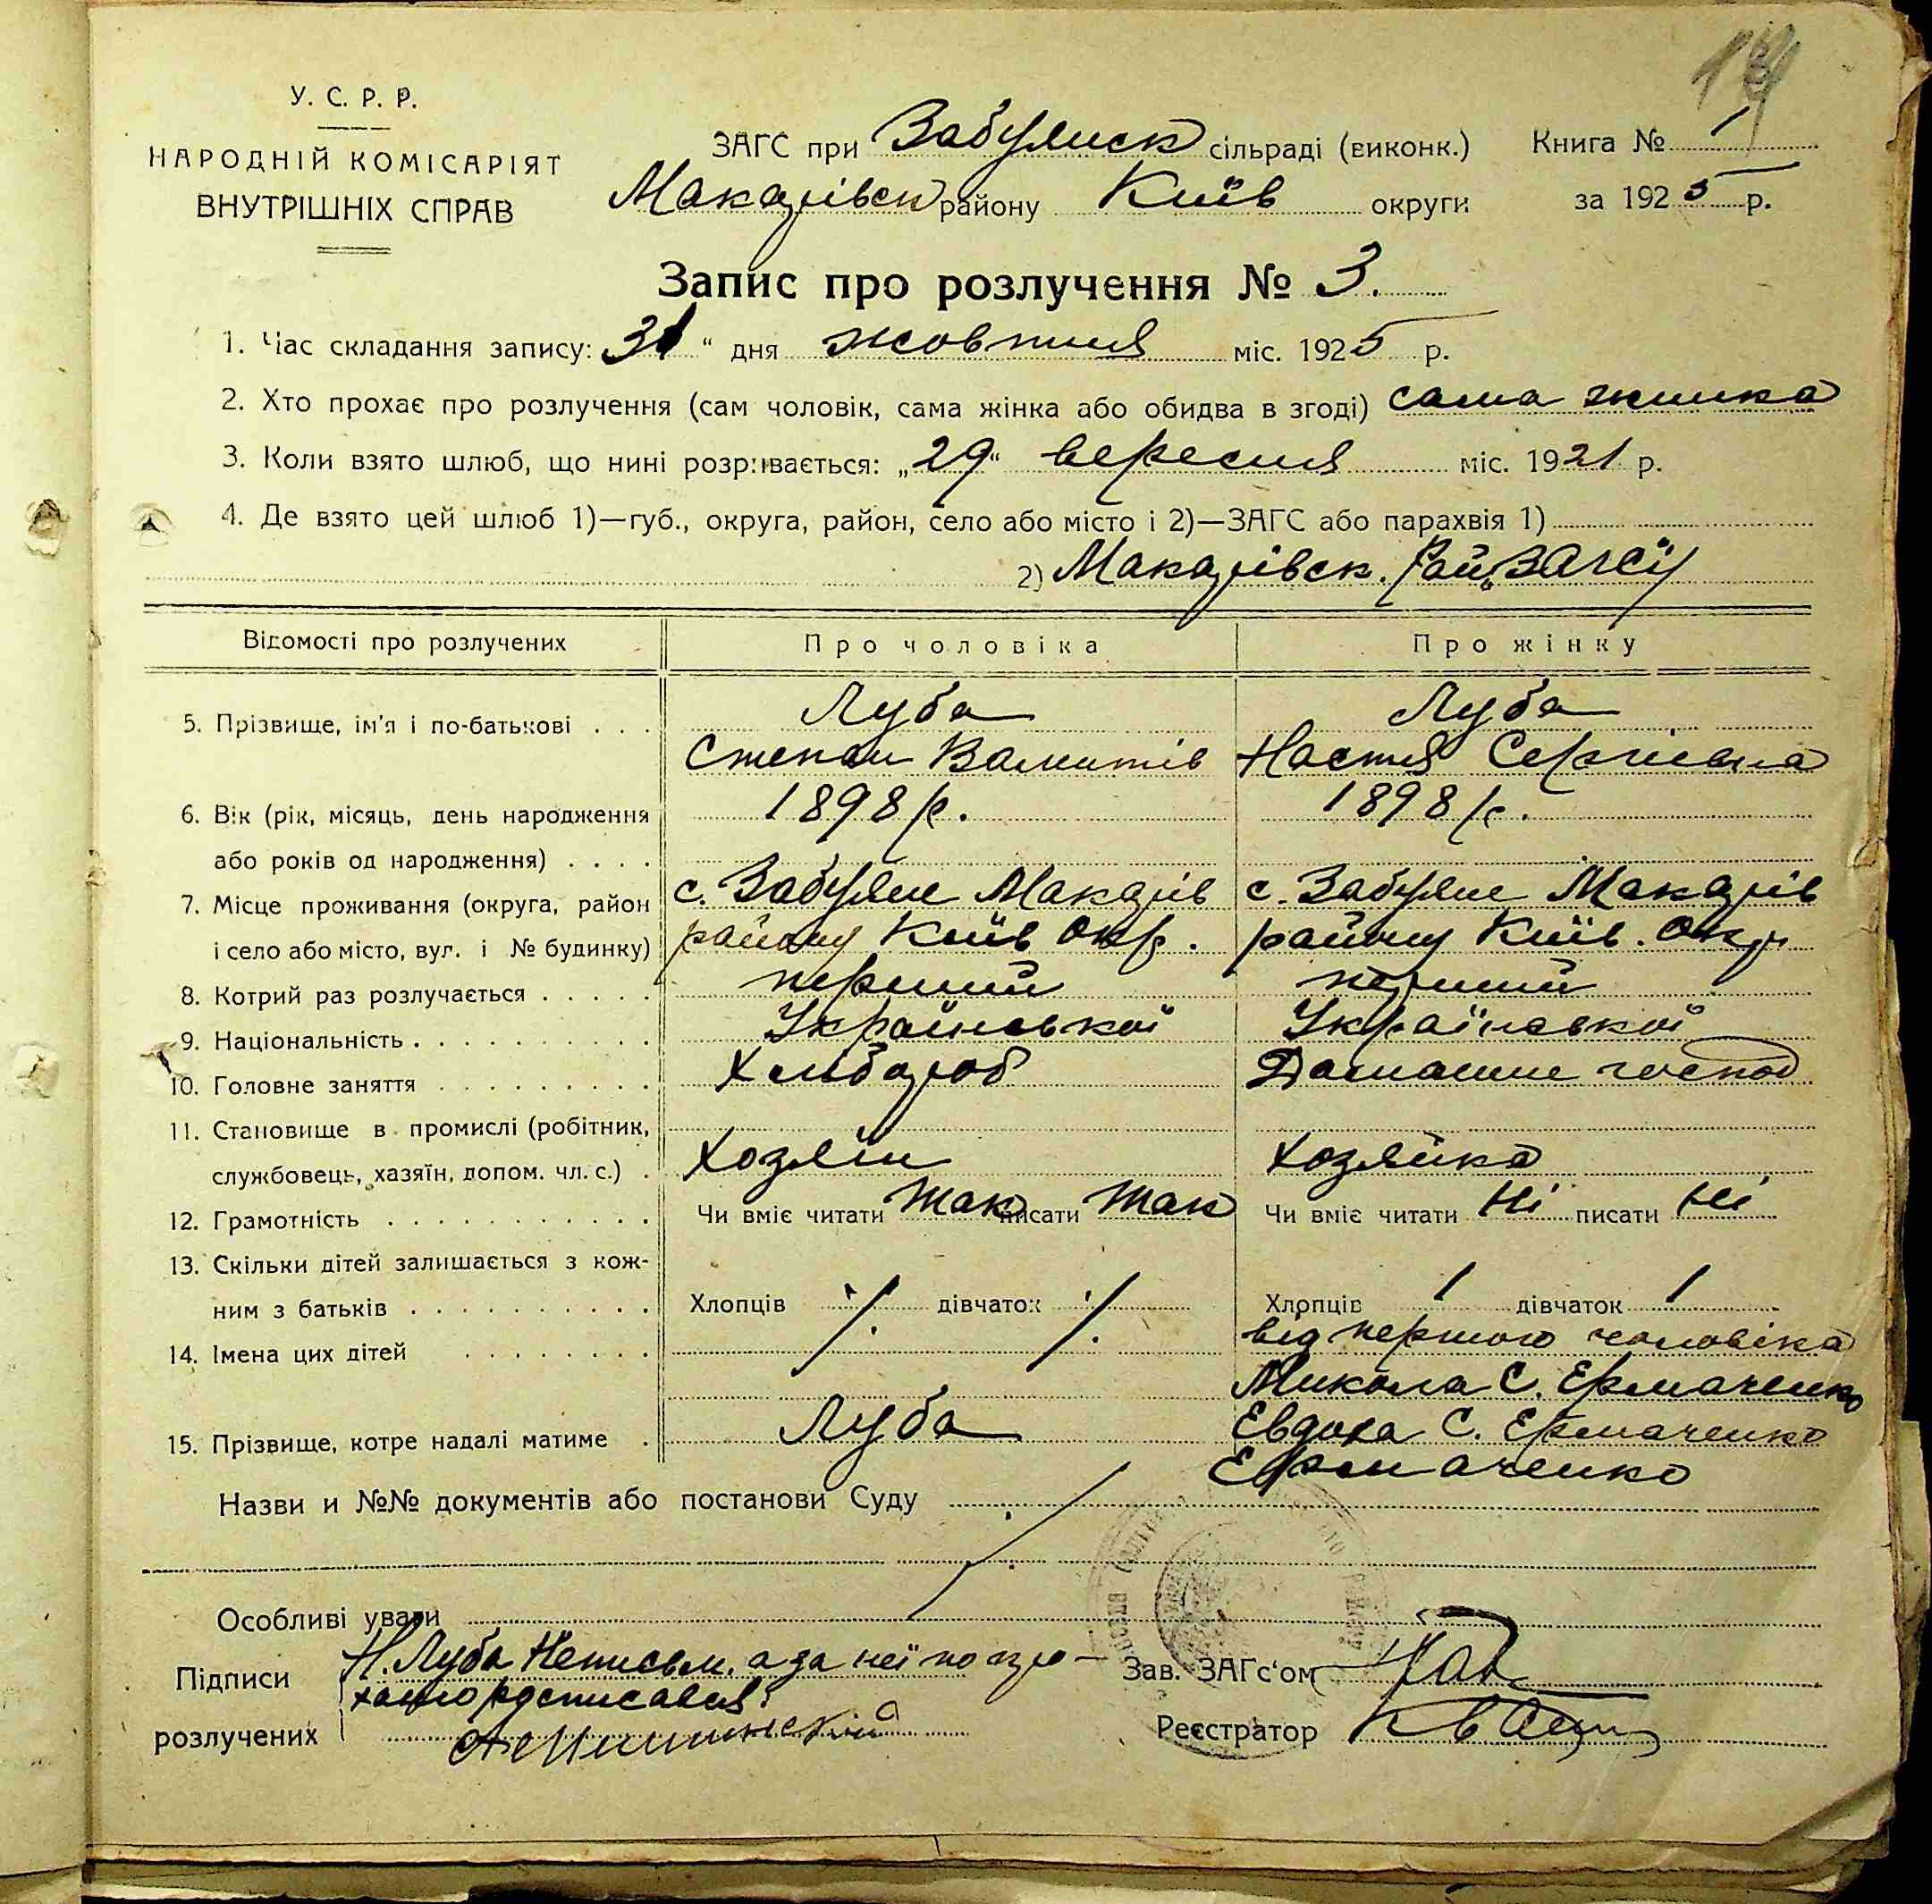 У. С. Р. Р.
НАРОДНІЙ КОМІСАРІЯТ
ВНУТРІШНІХ СПРАВ
ЗАГС при Забуянск сільраді (виконк.) Книга № 1
Макарівськ району Київ округи за 1925 р.
Запис про розлучення № 3.
1. Час складання запису: 31 " дня жовтня міс. 1925 р.
2. Хто прохає про розлучення (сам чоловік, сама жінка або обидва в згоді) сама жинка
3. Коли взято шлюб, що нині розривається: „29" вересня міс. 1921 р.
4. Де взято цей шлюб 1)—губ., округа, район, село або місто і 2)—ЗАГС або парахвія 1)
2) Макарівск. Рай
Відомості про розлучених Про чоловіка Про жінку
5. Прізвище, ім'я і по-батькові . . . Луба Луба
Степан Настя Сергіевна
6. Вік (рік, місяць, день народження 1898 р. 1898 р.
або років од народження) . . . .
7. Місце проживання (округа, район с. Забуяне Макарів с. Забуяне Макарів
і село або місто, вул. і № будинку) району Київ Окр. району Київ. Окр
8. Котрий раз розлучається . . . . . перший перший
9. Національність . . . . . . . . . . Української Української
10. Головне заняття . . . . . . . . . Хлібороб Домашне господ
11. Становище в промислі (робітник,
службовець, хазяїн, допом. чл. с.) . Хозяін Хозяйка
12. Грамотність . . . . . . . . . . . Чи вміє читати Так писати Так Чи вміє читати Ні писати Ні
13. Скільки дітей залишається з кож-
ним з батьків . . . . . . . . . . Хлопців дівчаток Хлопців 1 дівчаток 1
від першого чоловіка
14. Імена цих дітей . . . . . . . .
Микола С. Ермаченко
15. Прізвище, котре надалі матиме . Луба Евдоха С. Ермаченко
Ермаченко
Назви и №№ документів або постанови Суду
Особливі уваги
Підписи Н. Луба Неписьм. а за неї по про-
Зав. ЗАГс'ом
ханю росписався
розлучених
Реєстратор